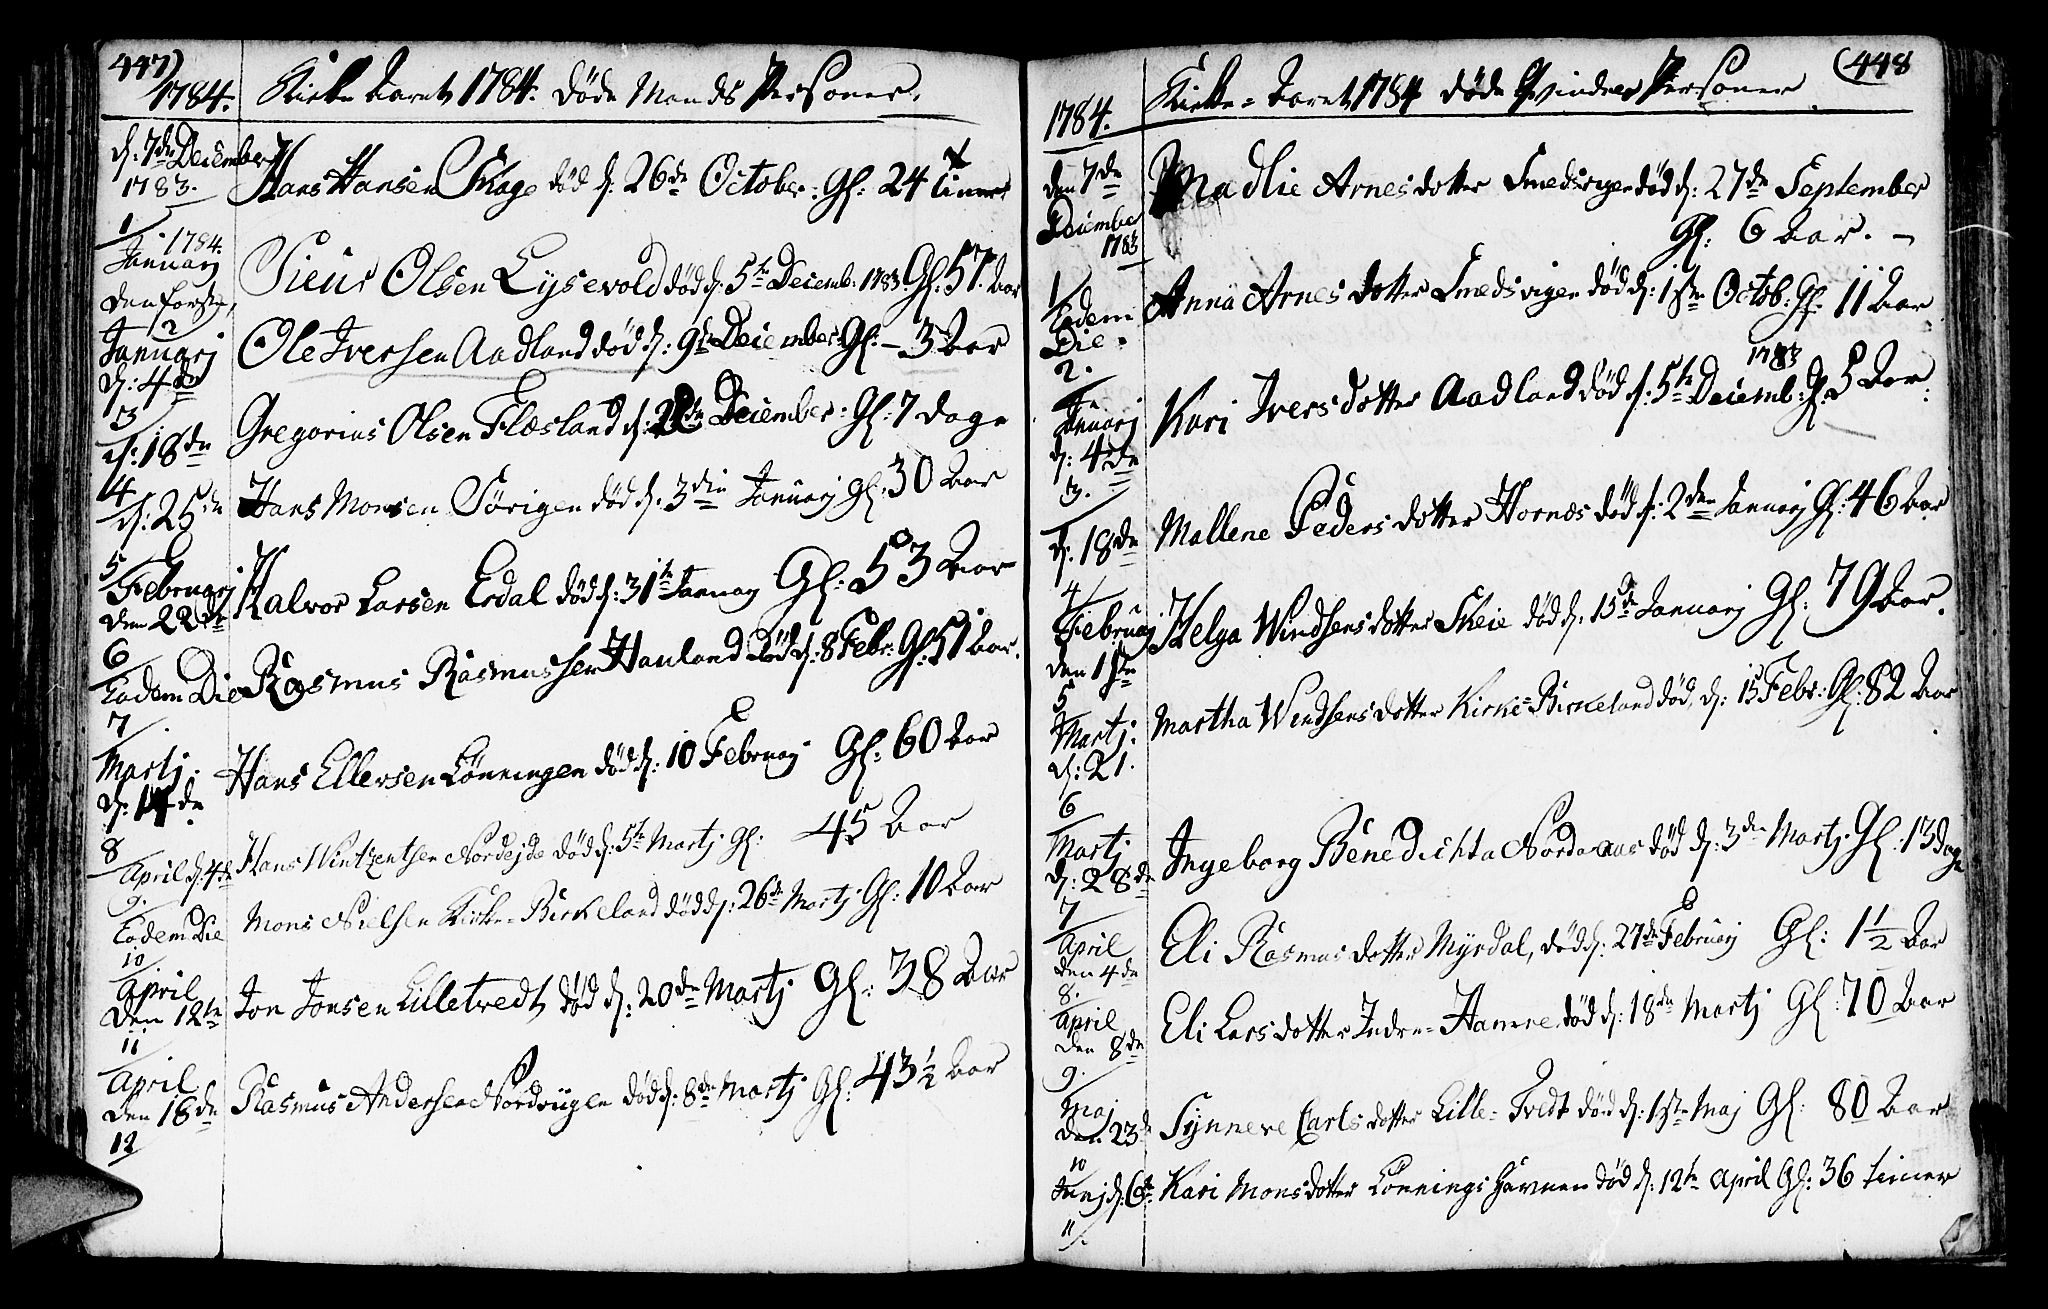 447)
1784. Kirke Aaret 1784. døde Mands Personer.
d: 7de December
1783. Hans Hansen Skage død d: 26de October. Gl: 24 Timer
1
1784.
Januarj
den første, Siens Olsen Lysevold død d: 5te Decemb: 1783. Gl: 57. Aar
2
Januarj
d: 4de Ole Iversen Aadland død d: 9de December. Gl: 3 Aar
3
d: 18de Gregorius Olsen Flæsland d: 22de December: Gl: 7 dage
4
d: 25de Hans Monsen Sørigen død d: 3die Januarj Gl: 30 Aar
5
Februarj
den 22de Halvor Larsen Erdal død d: 31te Januarj Gl: 53 Aar
6
Eodem Die Rasmus Rasmussen Hauland død d: 8 Febr: Gl: 51 Aar.
7
Martj.
d: 14de Hans Ellersen Lønningen død d: 10 Februarj Gl: 60 Aar
8
April d: 4de Hans Wintzentsen Nordejde død d: 5te Martj Gl: 45 Aar
9.
Eodem Die Mons Nielsen Kirke-Birkeland død d: 26de Martj Gl: 10 Aar
10
April
den 12te Jon Jonsen Lilletvedt død d: 20de Martj Gl: 38 Aar
11
April
den 18de Rasmus Andersen Nordvigen død d: 8de Martj Gl: 43 1/2 Aar
12
(448
1784. Kirke-Aaret 1784 døde Qvindes Personer
den 7de
December
1783 Madlie Arnesdotter Smedsvigen død d: 27de September
Gl: 6 Aar. -
1
Eodem
Die. Anna Arnes dotter Smedsvigen død d: 1ste Octob: Gl: 11 Aar
2.
Januarj
d: 4de Kari Ivers dotter Aadland død d: 5te Decemb: 1783 Gl. 5 Aar.
3.
d. 18de Mallene Peders dotter Hornæs død d: 2den Januarj Gl: 46 Aar
4
Februarj
den 1ste Helga Windsens dotter Skeie død d: 15de Januarj Gl: 79 Aar.
5
Martj:
d: 21. Martha Windsens dotter Kirke-Birkeland død, d: 15 Febr: Gl: 82 Aar
6
Martj
d: 28de Ingeborg Benedichta Nordaaas død d: 3de Martj Gl: 13 dage
7
April
den 4de Eli Rasmus dotter Myrdal, død d: 27de Februarj Gl: 1 1/2 Aar
8.
April
den 8de Eli Lars dotter Indre-Hamre død d: 18de Martj Gl: 70 Aar
9.
Maj
den 23de Synneve Carls dotter Lille-Tvedt død d: 1ste Maj Gl: 80 Aar
10
Junj d: 6te Kari Mons dotter Lønnings Havnen død d: 12te April Gl: 36 timer
11.